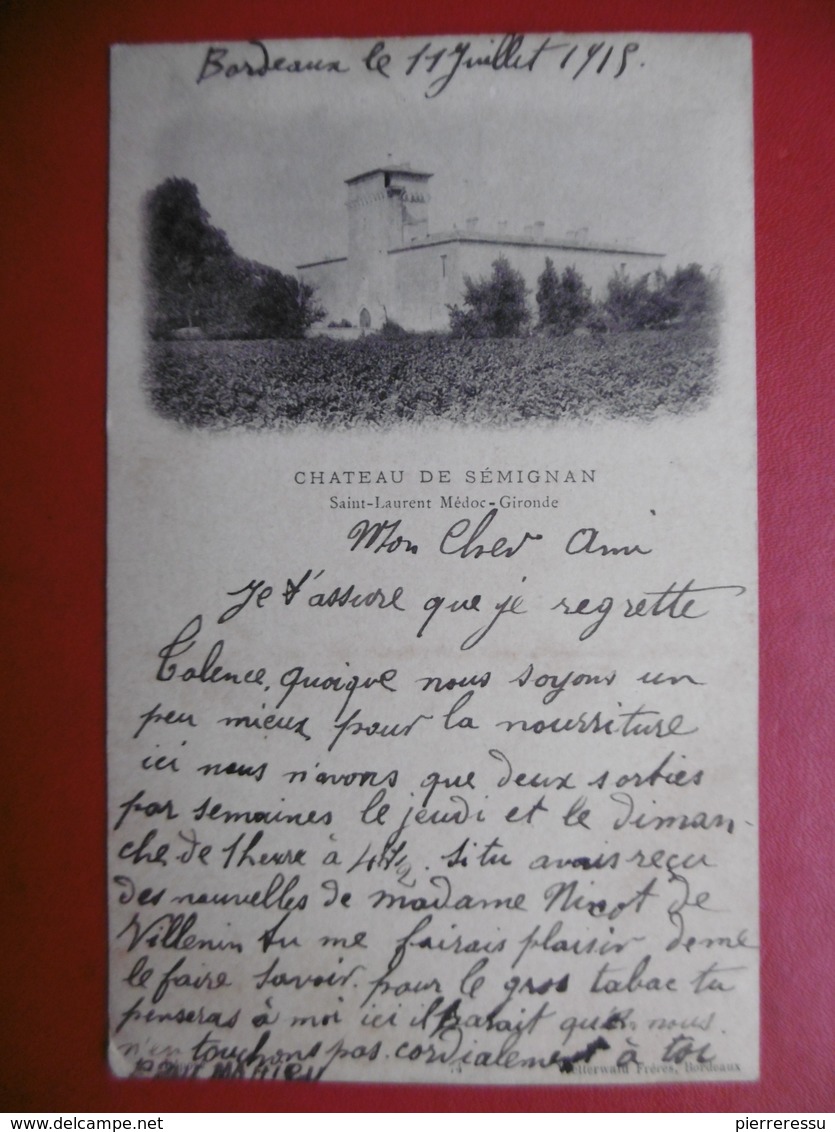 Bordeaux le 11 Juillet 1915.
CHATEAU DE SÉMIGNAN
Saint-Laurent Médoc-Gironde
Mon Cher Ami
Je t'assure que je regrette
Talence, quoique nous soyons un
peu mieux pour la nourriture
ici nous n'avons que deux sorties
par semaines le jeudi et le diman-
che de 1 heure à 4 h 1/2. Si tu avais reçu
des nouvelles de madame Nicot de
Villenin tu me ferais plaisir de me
le faire savoir. pour le gros tabac tu
penseras à moi ici il parait qu'on nous
n'en touchons pas. cordialement à toi
Wetterwald Frères, Bordeaux
delcampe.net
pierreressu